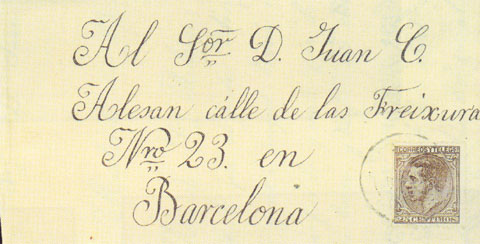 Al Sor. D. Juan C.
Alesan calle de las Freixura
Nro 23. en
Barcelona
CORREOS Y TELEGS
25 CENTIMOS